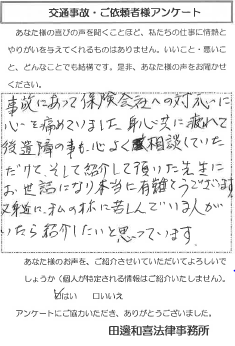 交通事故・ご依頼者様アンケート
あなた様の喜びの声を聞くことほど、私たちの仕事に情熱と
やりがいを与えてくれるものはありません。いいこと・悪いこ
と、どんなことでも結構です。是非、あなた様の声をお聞かせ
ください。
事故にあって保険会社への対応に
心を痛めていました。身心共に疲れて
後遺障の事も、心よく相談していた
だけて、そして紹介して頂いた先生に
お世話になり本当に有難とうございます
又身近に、私の様に苦しんでいる人が
いたら紹介したいと思っています。
あなた様のお声を、ご紹介させていただいてよろしいで
しょうか(個人が特定される情報はご紹介いたしません)。
はい 口いいえ
アンケートにご協力いただき、ありがとうございました。
田邊和喜法律事務所